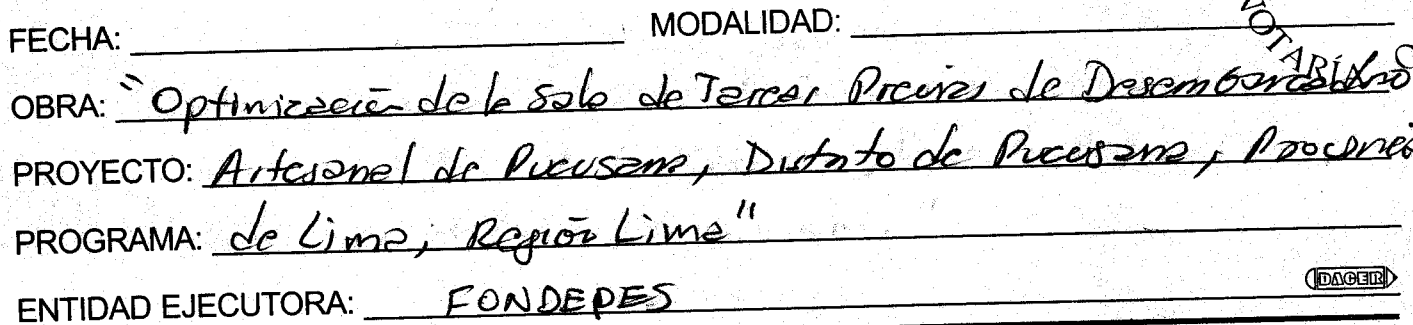 FECHA: MODALIDAD:
NOTARIAL
OBRA: "Optimización de la Sala de Tareas Previas de Desembarcadero
PROYECTO: Artesanal de Pucusana, Distrito de Pucusana, Provincia
PROGRAMA: de Lima, Región Lima"
ENTIDAD EJECUTORA: FONDEPES
DACER